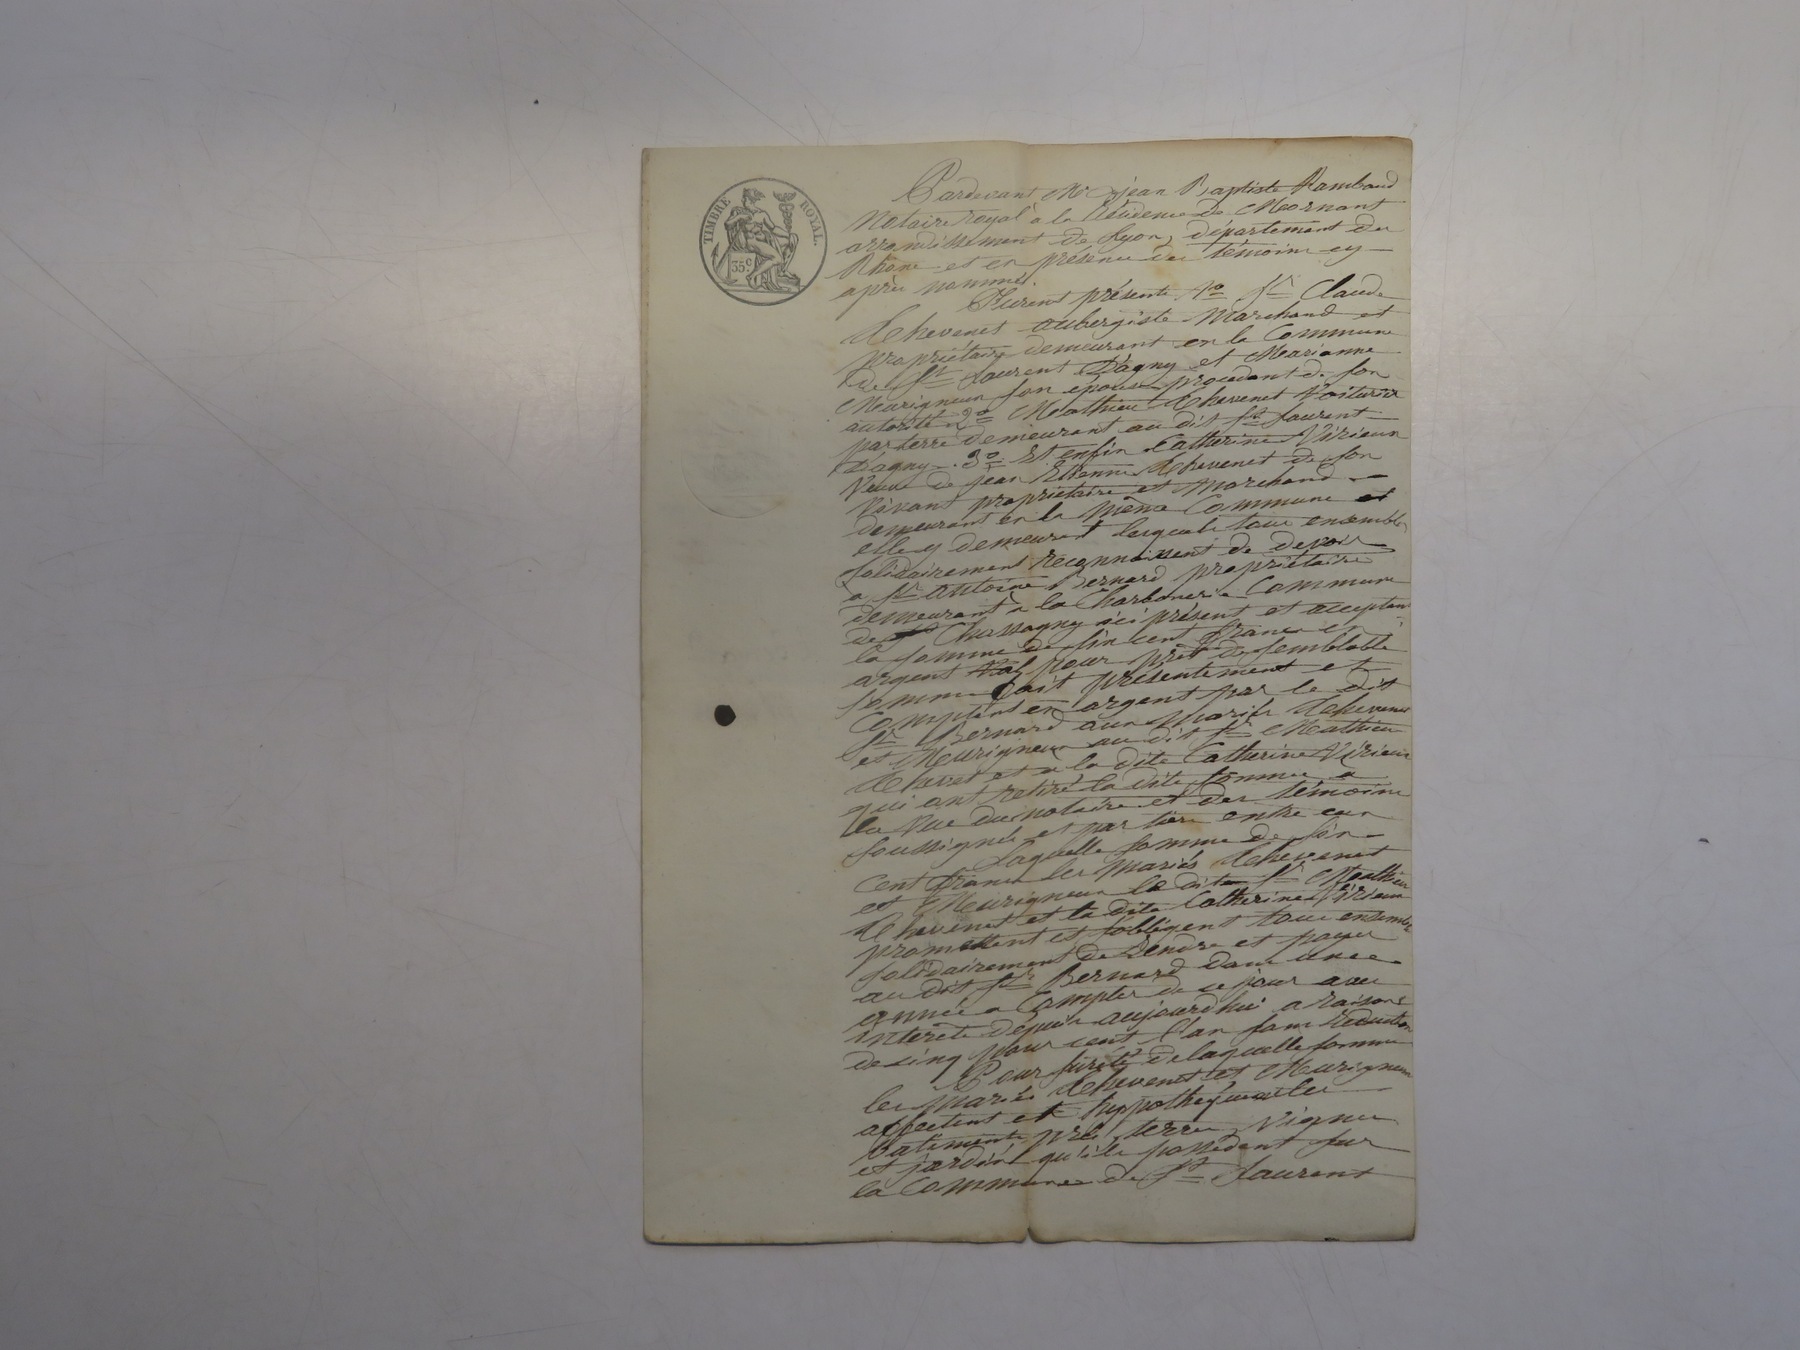 TIMBRE ROYAL.
35 c
Pardevant Me jean Baptiste Rambaud
Notaire royal à la Résidence de Mornant
arrondissement de Lyon, département du
Rhone et en présence des témoins cy
après nommés.
Furent présents 1o Sr Claude
Thevenet aubergiste Marchand et
propriétaire demeurant en la Commune
de St Laurent D'agny et Marianne
Murigneux son epouse procedant de son
autorité 2o Mathieu Thevenet Voiturier
par terre demeurant au dit St Laurent
D'agny. 3o Et enfin Catherine Virieux
Veuve de jean Etienne Thevenet de son
Vivant propriétaire et Marchand
demeurant en la même Commune et
elle y demeurant lesquels tous ensemble
solidairement reconnaissent de devoir
a Sr antoine Bernard propriétaire
demeurant à la Charbonerie Commune
de Chassagny ici présent et acceptant
la somme de six cent francs en
argent pour prêt de semblable
somme fait présentement et
Comptant en argent par le dit
Sr Bernard aux Mariés Thevenet
et Murigneux au dit Sr Mathieu
Thevenet et a la dite Catherine Virieux
qui ont retiré la dite somme a
la Vue du notaire et des témoins
soussignés et par tiers entre eux
Laquelle somme de six
Cent francs les Mariés Thevenet
et Murigneux le dit Sr Mathieu
Thevenet et la dite Catherine Virieux
promettent et s'obligent tous ensemble
solidairement de Rendre et payer
au dit Sr Bernard dans une
année a Compter de ce jour avec
interets depuis aujourdhui a raison
de cinq pour cent l'an sans Reduction
Pour sureté de laquelle somme
les Mariés Thevenet et Murigneux
affectent et hyppothequent les
Batiments, pré, terre, Vignes
et jardin qu'ils possedent sur
la Commune de St Laurent